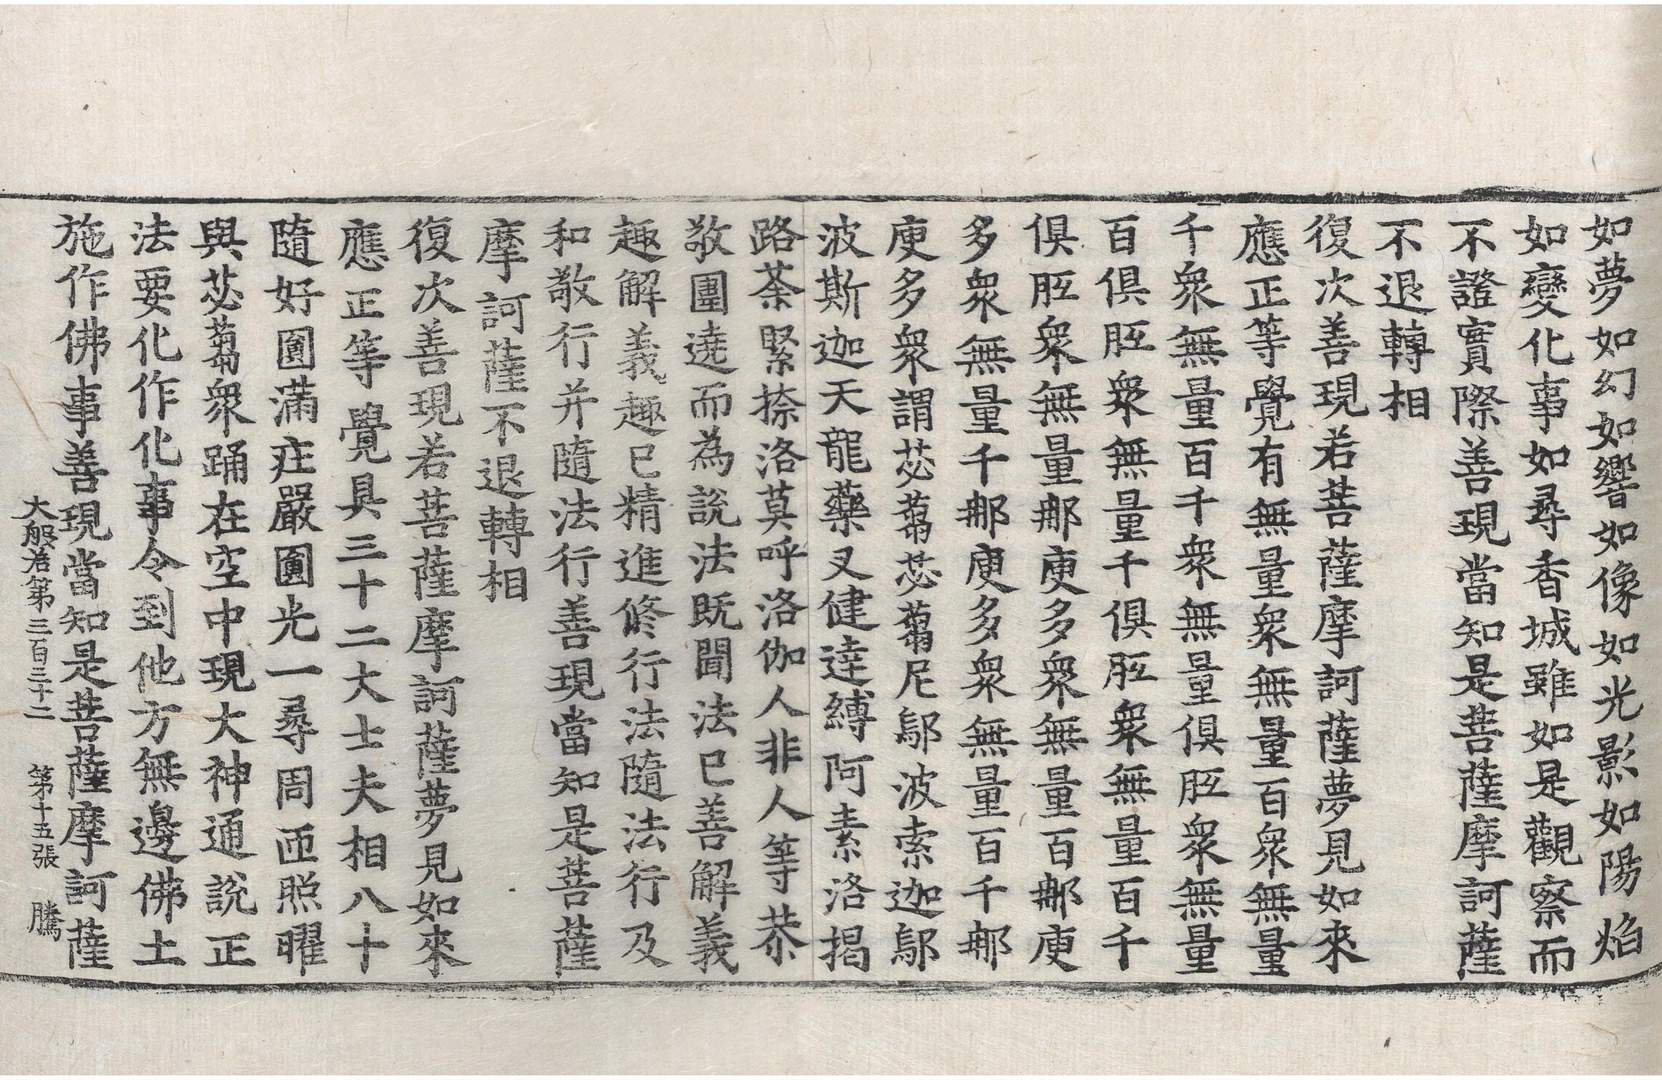 如夢如幻如響如像如光影如陽焰
如變化事如尋香城雖如是觀察而
不證實際善現當知是菩薩摩訶薩
不退轉相
復次善現若菩薩摩訶薩夢見如來
應正等覺有無量衆無量百衆無量
千衆無量百千衆無量俱胝衆無量
百俱胝衆無量千俱胝衆無量百千
俱胝衆無量郍庾多衆無量百郍庾
多衆無量千郍庾多衆無量百千郍
庾多衆謂苾蒭苾蒭尼鄔波索迦鄔
波斯迦天龍藥叉健達縛阿素洛揭
路荼緊捺洛莫呼洛伽人非人等恭
敬圍遶而為說法既聞法已善解義
趣解義趣已精進修行法隨法行及
和敬行并隨法行善現當知是菩薩
摩訶薩不退轉相
復次善現若菩薩摩訶薩夢見如來
應正等覺具三十二大士夫相八十
隨好圓滿莊嚴圓光一尋周匝照曜
與苾蒭衆踊在空中現大神通說正
法要化作化事令到他方無邊佛土
施作佛事善現當知是菩薩摩訶薩
大般若第三百三十二 第十五張 騰